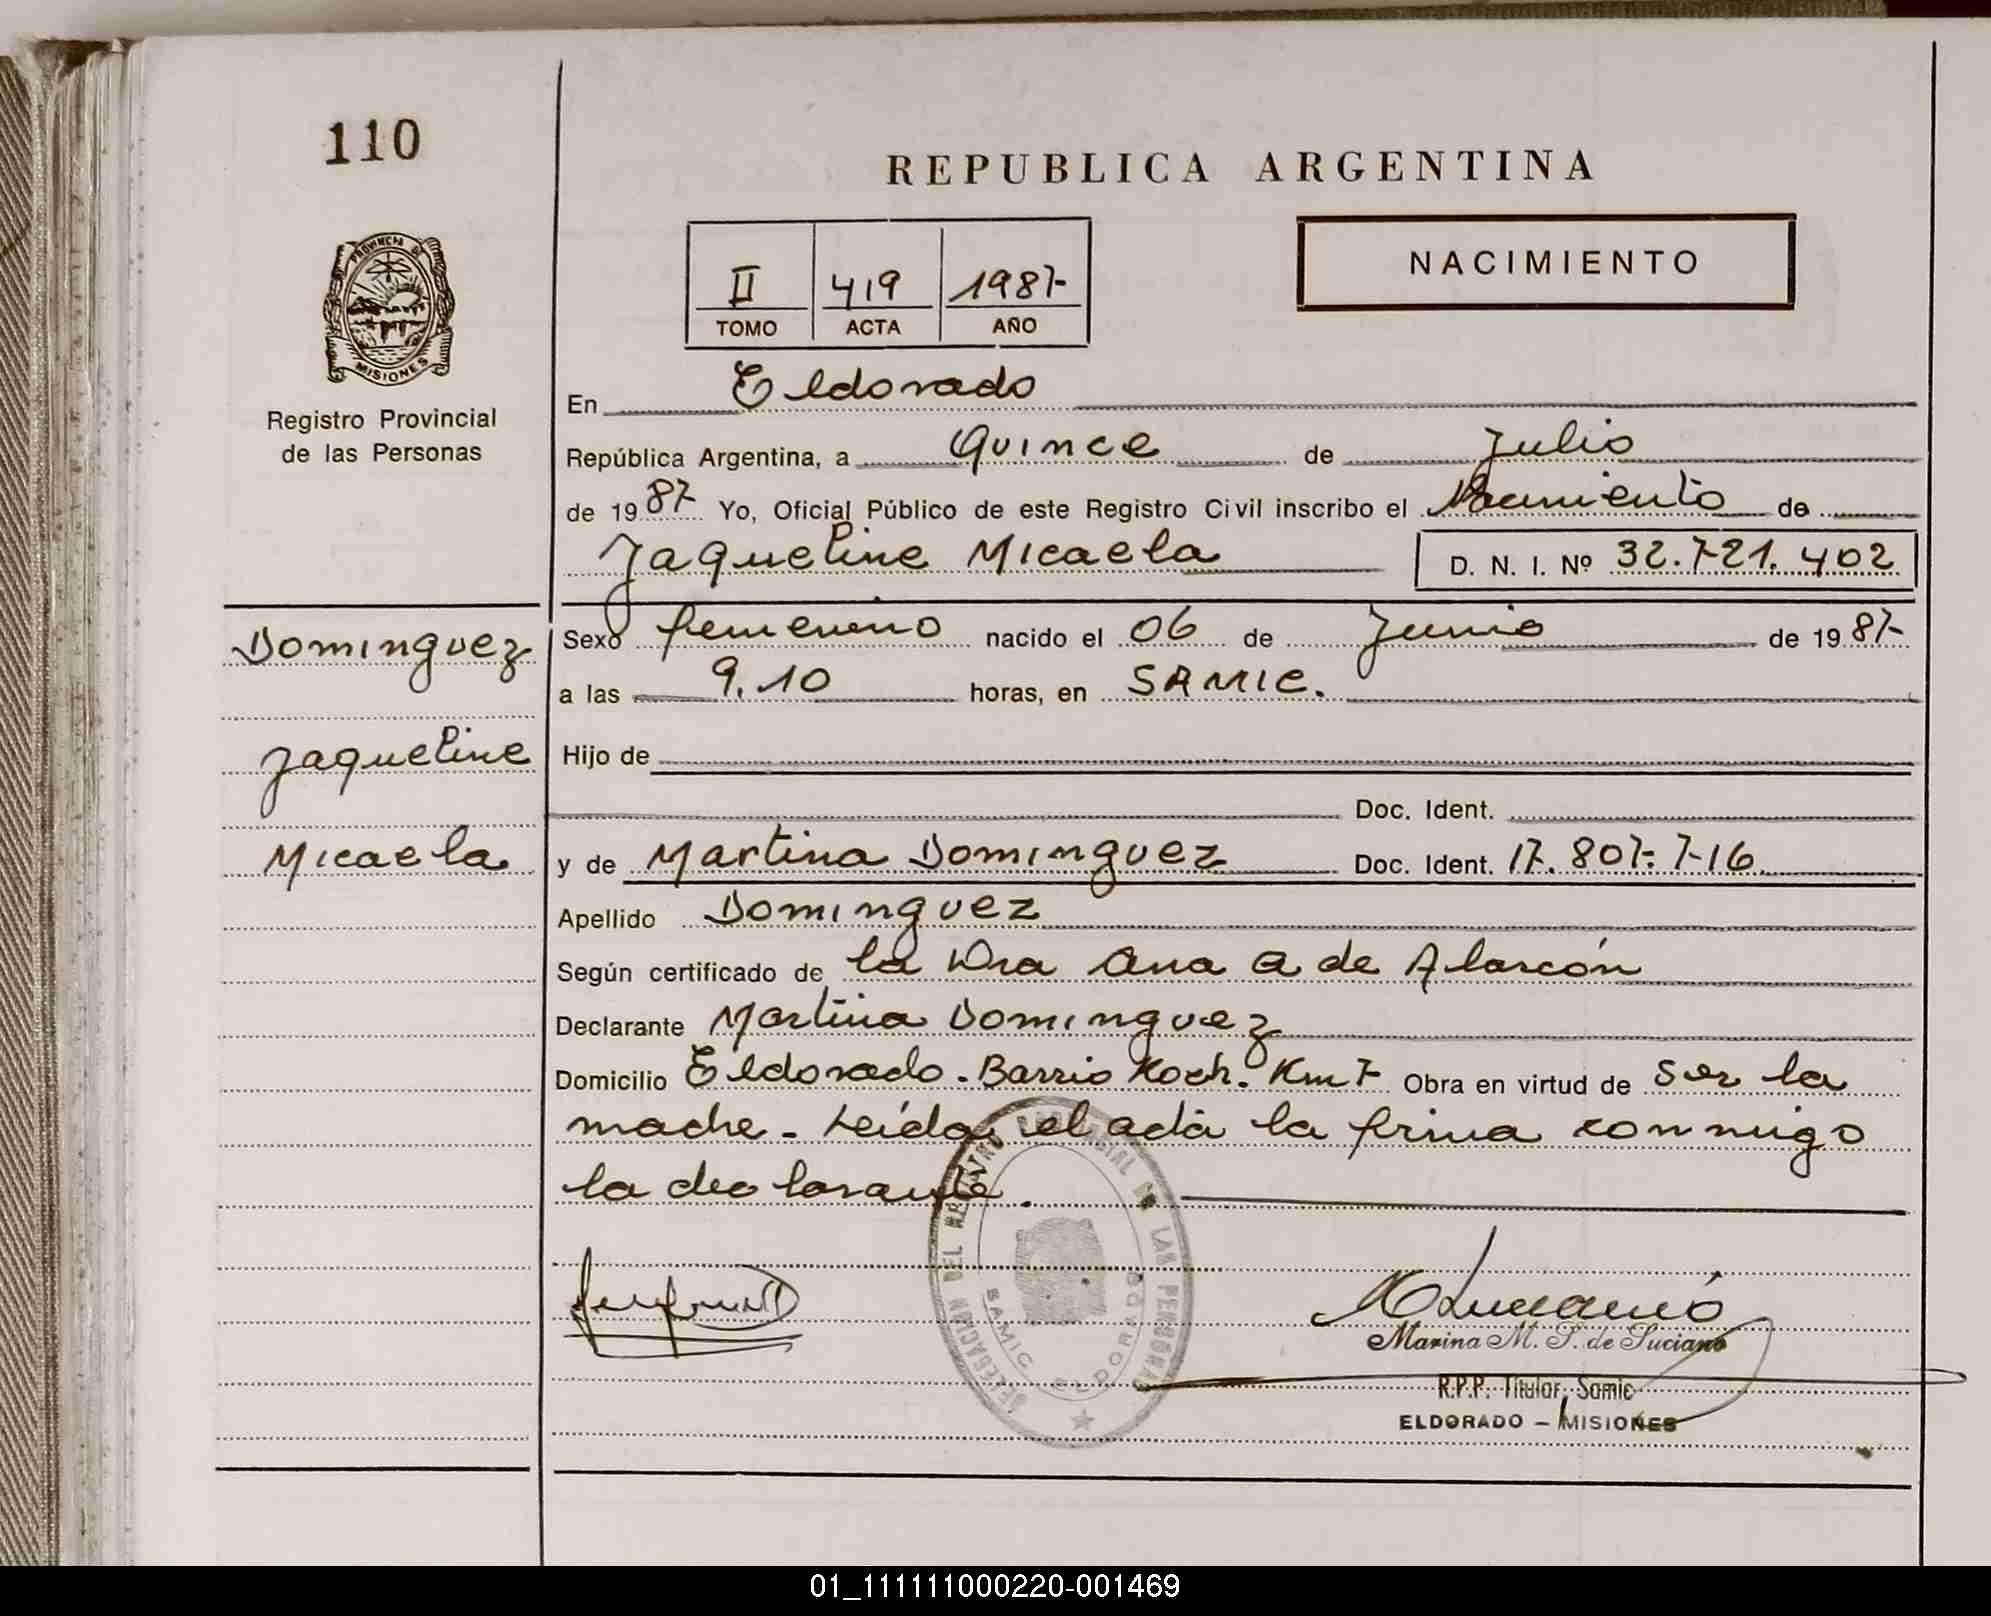 110
REPUBLICA ARGENTINA
NACIMIENTO
II 419 1987
TOMO ACTA AÑO
PROVINCIA DE
MISIONES
Registro Provincial
de las Personas
En Eldorado
República Argentina, a Quince de Julio
de 1987 Yo, Oficial Público de este Registro Civil inscribo el Nacimiento de
Jaqueline Micaela D. N. I. Nº 32.721.402
Dominguez
Jaqueline
Micaela
Sexo femenino nacido el 06 de Junio de 1987
a las 9.10 horas, en SAMIC.
Hijo de
Doc. Ident.
y de Martina Dominguez Doc. Ident. 17.807.716
Apellido Dominguez
Según certificado de la Dra Ana a de Alarcón
Declarante Martina Dominguez
Domicilio Eldorado. Barrio Koch. Km 7 Obra en virtud de Ser la
madre. Leída el acta la firma conmigo
la declarante.
DELEGACION DEL REGISTRO PROVINCIAL DE LAS PERSONAS
SAMIC ELDORADO
Marina M. P. de Luciano
R.P.P. Titular, Samic
ELDORADO - MISIONES
01_111111000220-001469